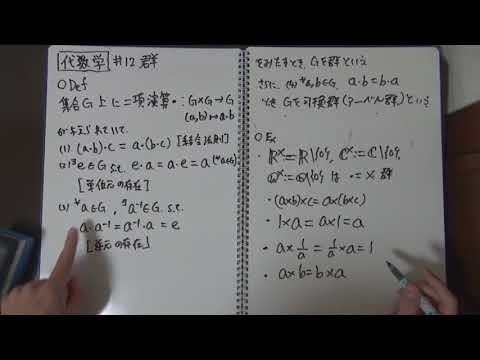 代数学 #12 群
○Def
集合G上に二項演算・: G×G→G
(a,b)↦a・b
が与えられていて
(1) (a・b)・c = a・(b・c) [結合法則]
(2) ∃e∈G s.t. e・a = a・e = a (∀a∈G)
[単位元の存在]
(3) ∀a∈G, ∃a⁻¹∈G s.t.
a・a⁻¹ = a⁻¹・a = e
[逆元の存在]
をみたすとき、Gを群という
さらに (4) ∀a,b∈G, a・b = b・a
のとき Gを可換群(アーベル群)という
○Ex
・ℝ^× := ℝ\{0}, ℂ^× := ℂ\{0},
ℚ^× := ℚ\{0} は ・=× 群
・(a×b)×c = a×(b×c)
・1×a = a×1 = a
・a×1/a = 1/a×a = 1
・a×b = b×a